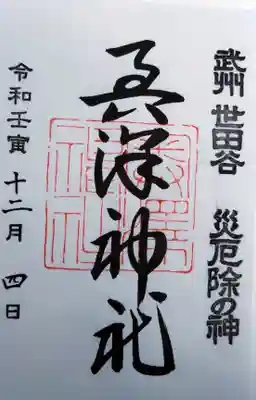 武州 世田谷 災厄除の神
奥澤神社
令和壬寅 十二月 四日